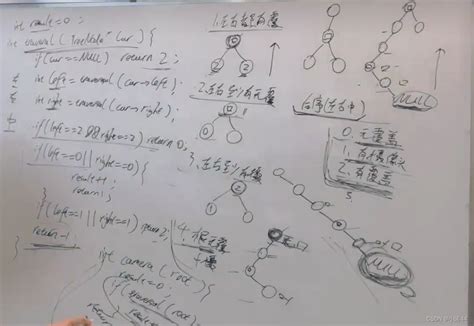 int result=0;
int traversal(TreeNode* cur){
if(cur==NULL) return 2;
左 int left=traversal(cur->left);
右 int right=traversal(cur->right);
中
if(left==2&&right==2) return 0;
if(left==0||right==0){
result++;
return 1;
}
if(left==1||right==1) return 2;
return -1;
}
int camera(root){
result=0;
if(traversal(root)
result
return
1.左右都有覆盖
2.左右至少有无覆盖
3.左右至少有
4.根无覆
后序(左右中)
NULL
0.无覆盖
1.有摄像头
2.有覆盖
NULL